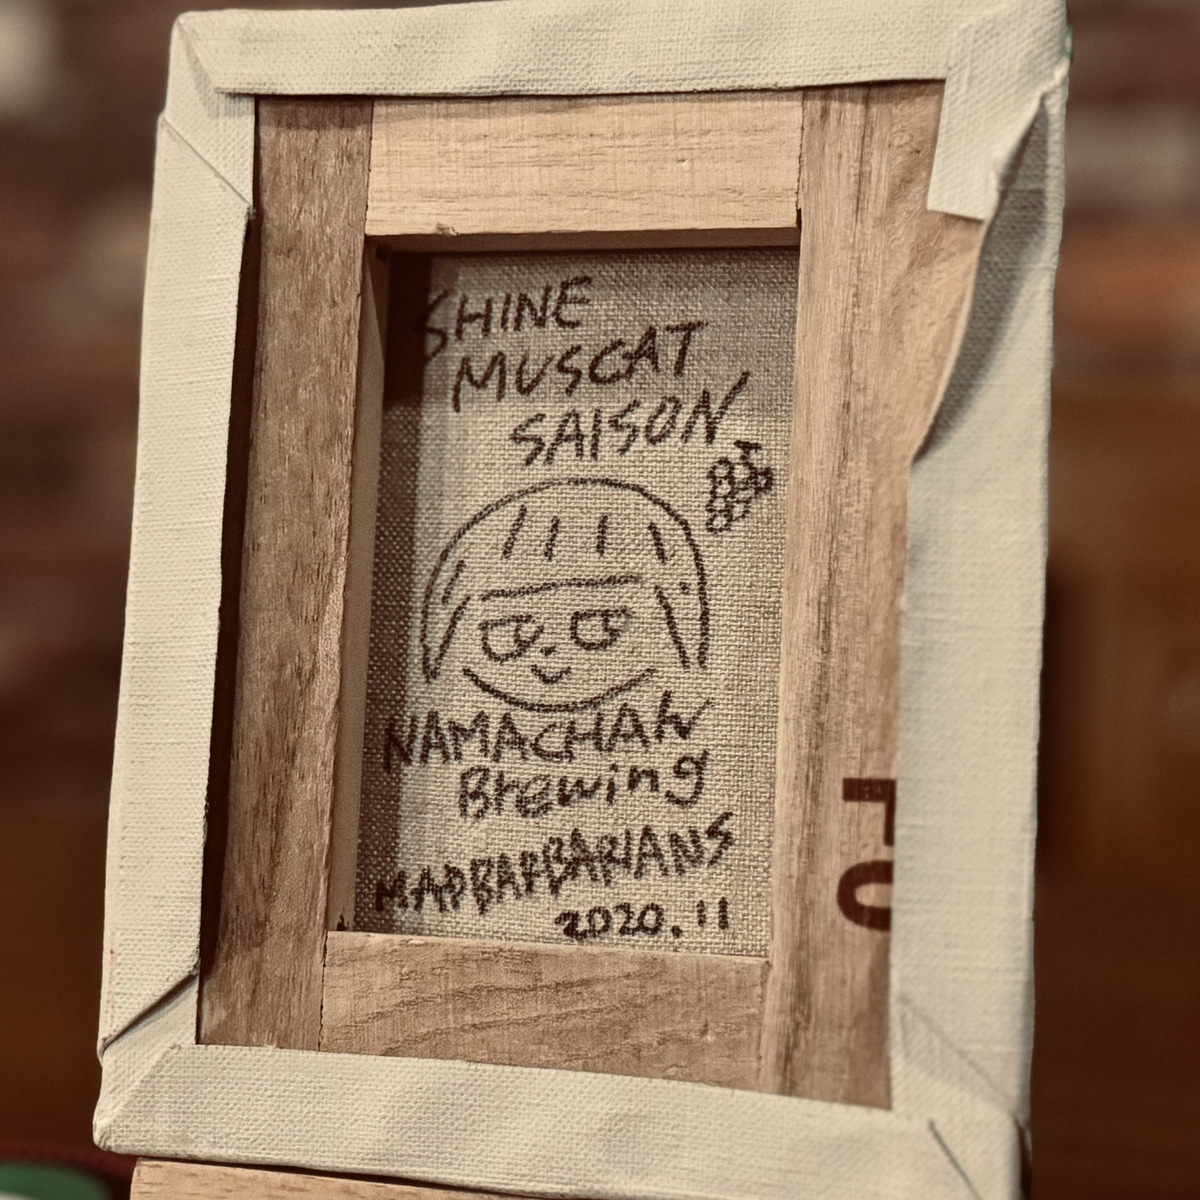 SHINE
MUSCAT
SAISON
NAMACHAN
Brewing
MADBARBARIANS
2020.11
F0